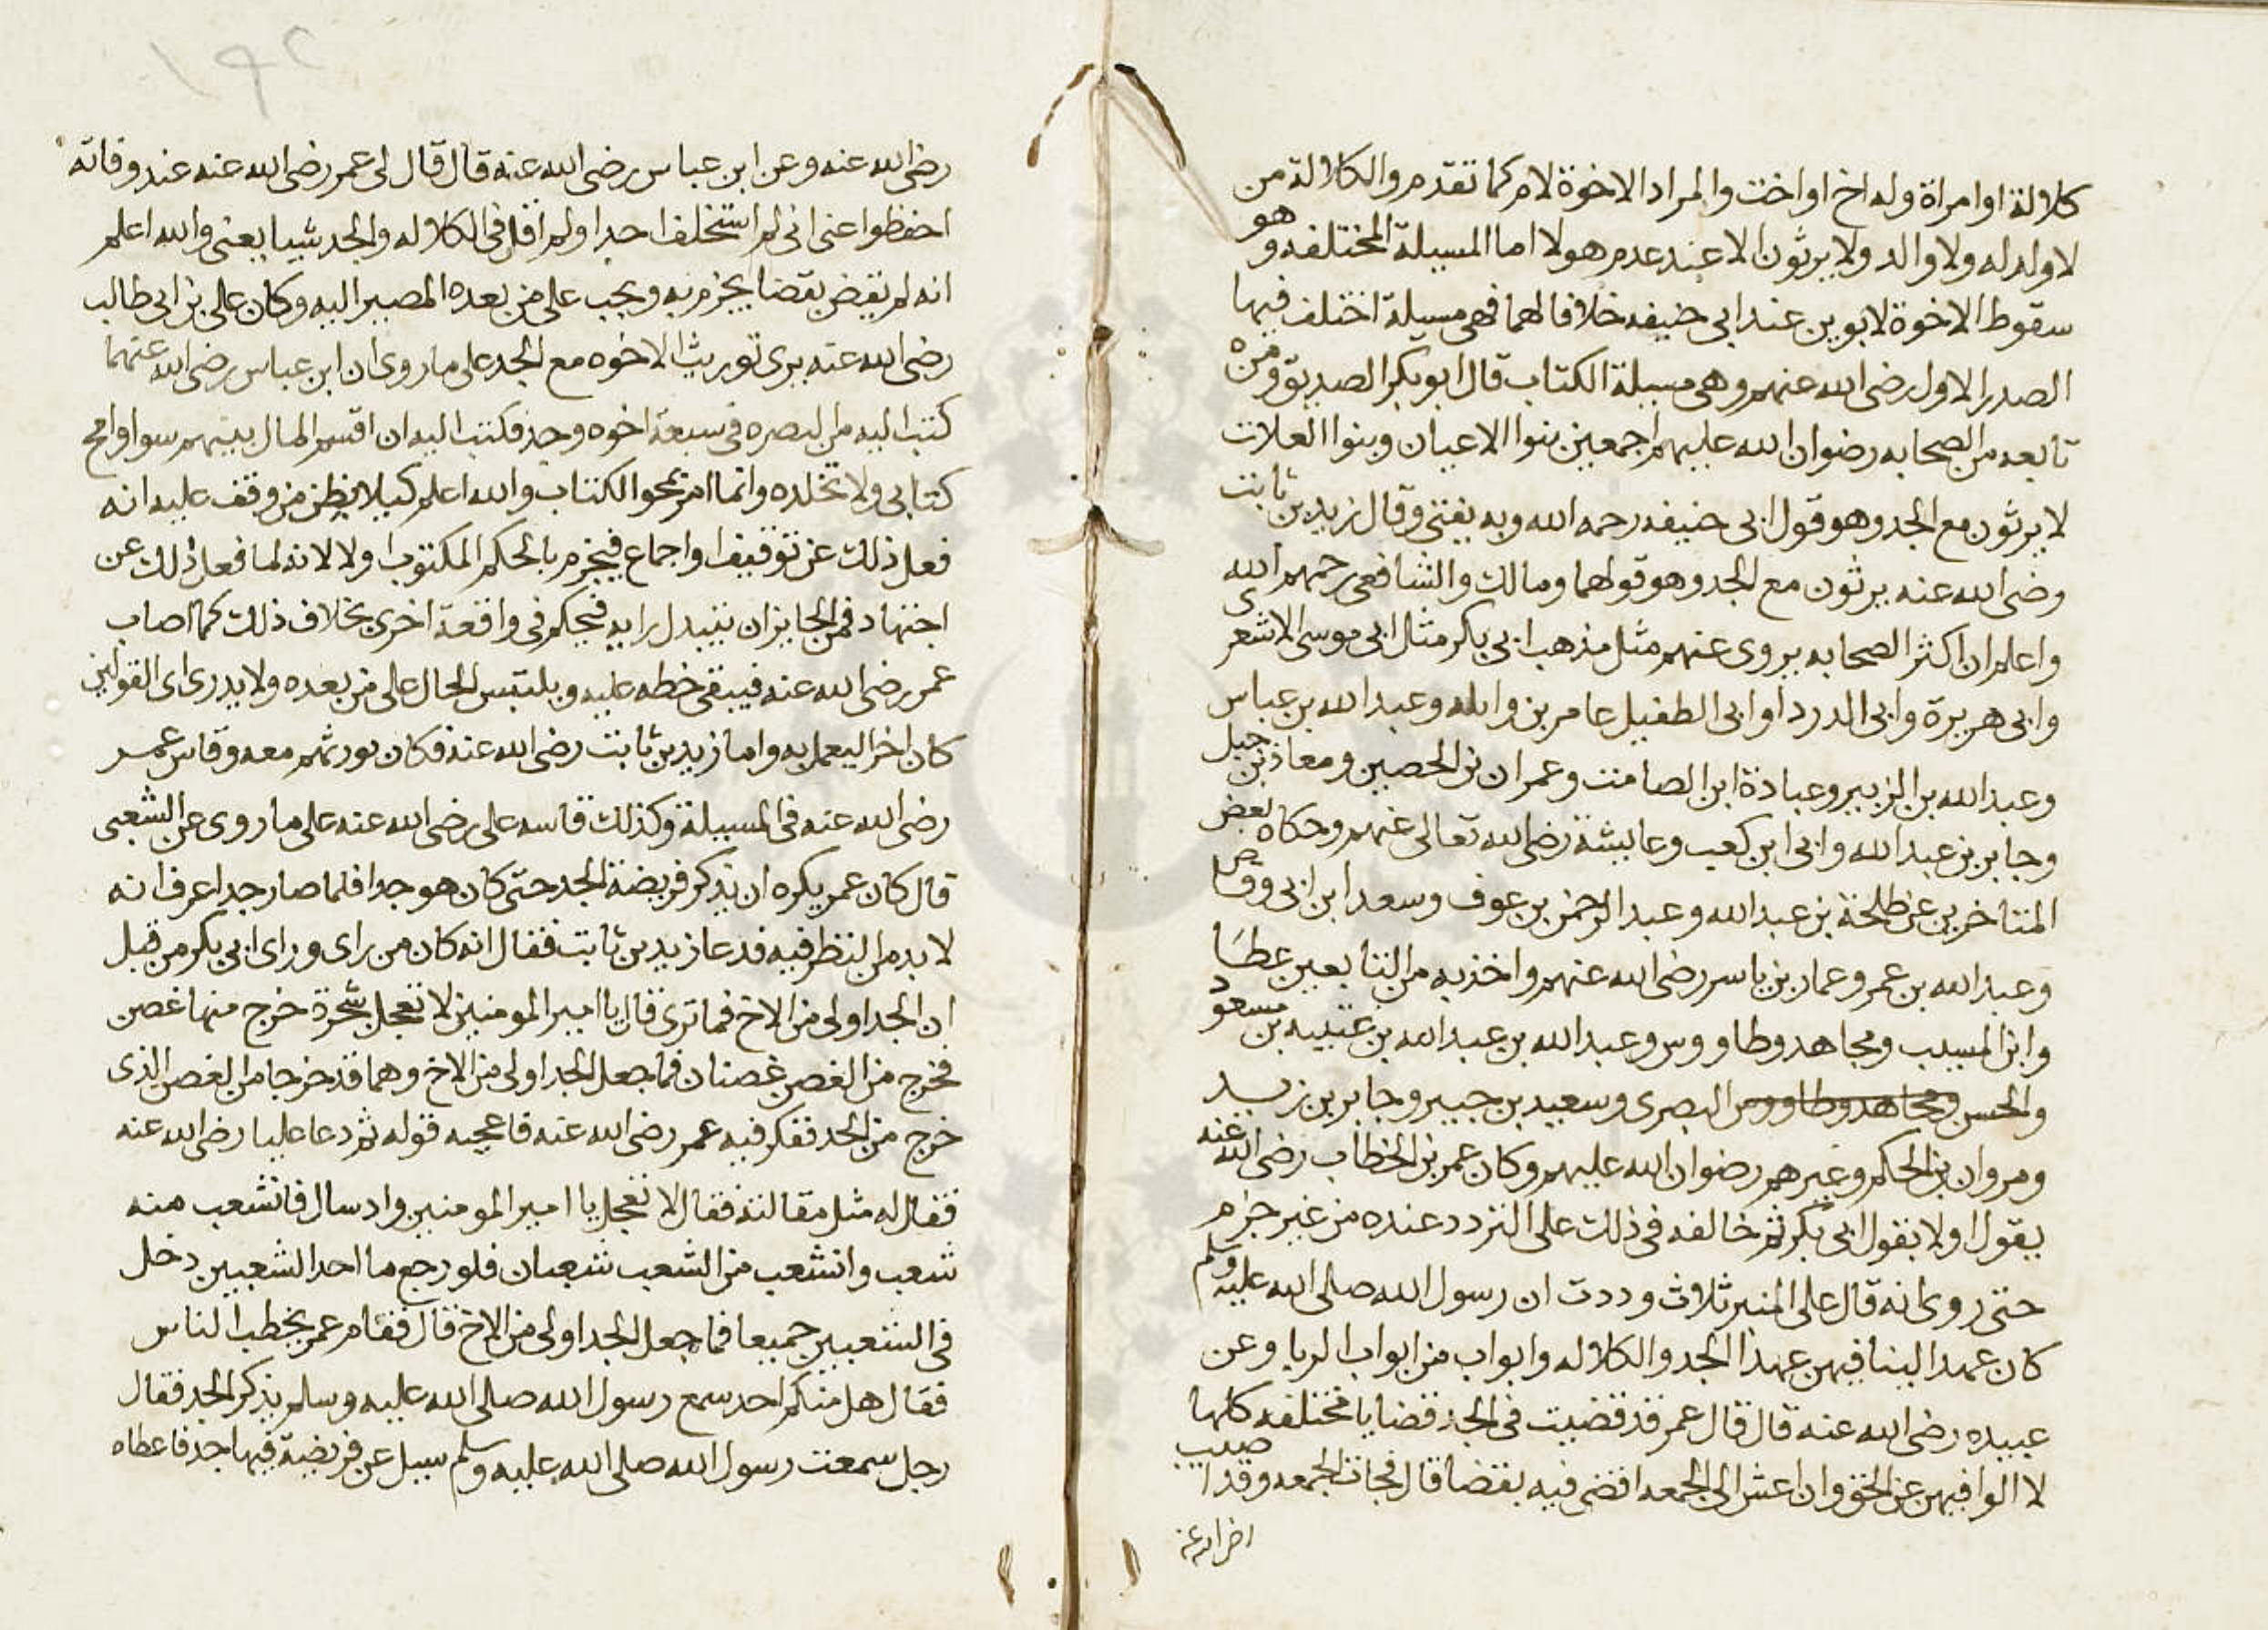 كلالة او امراة وله اخ او اخت والمراد الاخوة لام كما تقدم والكلالة من
لا ولد له ولا والد ولا يرثون الا عند عدم هولا اما المسيلة المختلفه وهو
سقوط الاخوة لابوين عند ابى حنيفه خلافا لهما فهى مسيلة اختلف فيها
الصدر الاول رضى الله عنهم وهى مسيلة الكتاب قال ابو بكر الصديق ومن
تابعه من الصحابه رضوان الله عليهم اجمعين بنوا الاعيان وبنوا العلات
لا يرثون مع الجد وهو قول ابى حنيفه رحمه الله وبه يفتى وقال زيد بن ثابت
رضى الله عنه يرثون مع الجد وهو قولهما ومالك والشافعى رحمهم الله
واعلم ان اكثر الصحابه يروى عنهم مثل مذهب ابى بكر مثل ابى موسى الاشعرى
وابى هريرة وابى الدردا وابى الطفيل عامر بن واىله وعبد الله بن عباس
وعبد الله بن الزبير وعبادة ابن الصامت وعمران بن الحصين ومعاذ بن جبل
وجابر بن عبد الله وابى ابن كعب وعايشة رضى الله تعالى عنهم وحكاه بعض
المتاخرين عن طلحة بن عبد الله وعبد الرحمن بن عوف وسعد ابن ابى وقاص
وعبد الله بن عمر وعمار بن ياسر رضى الله عنهم واخذ به من التابعين عطا
وابن المسيب ومجاهد وطاووس وعبد الله بن عبد الله بن عتبيه بن مسعود
والحسن ومجاهد وطاووس البصرى وسعيد بن جبير وجابر بن زيد
ومروان بن الحكم وغيرهم رضوان الله عليهم وكان عمر بن الخطاب رضى الله عنه
يقول اولا بقول ابى بكر ثم خالفه فى ذلك على التردد عنده من غير جزم
حتى روى انه قال على المنبر ثلاث وددت ان رسول الله صلى الله عليه وسلم
كان عهد الينا فيهن عهدا الجد والكلاله وابواب من ابواب الربا وعن
عبيده رضى الله عنه قال قال عمر قد قضيت فى الجد قضايا مختلفه كلها
لا الوا فيهن عن الحق وان اعش الى الجمعه اقضى فيه بقضا قال فجات الجمعه وقد اصيب
١٩٢
رضى الله عنه وعن ابن عباس رضى الله عنه قال قال لى عمر رضى الله عنه عند وفاته
احفظوا عنى انى لم استخلف احدا ولم اقل فى الكلاله والجد شيا يعنى والله اعلم
انه لم يقض بقضا يجزم به ويجب على من بعده المصير اليه وكان على بن ابى طالب
رضى الله عنه يرى توريث الاخوه مع الجد على ما روى ان ابن عباس رضى الله عنهما
كتب اليه من البصره فى سبعة اخوه وجد فكتب اليه ان اقسم المال بينهم سوا وامح
كتابى ولا تخلده وانما امر بمحو الكتاب والله اعلم كيلا يظن من وقف عليه انه
فعل ذلك عن توقيف او اجماع فيجزم بالحكم المكتوب اولا لانه لما فعل ذلك عن
اجتهاد فمن الجايز ان يتبدل رايه فيحكم فى واقعة اخرى بخلاف ذلك كما اصاب
عمر رضى الله عنه فيبقى خطه عليه ويلتبس الحال على من بعده ولا يدرى اى القولين
كان اخرا ليعمل به واما زيد بن ثابت رضى الله عنه فكان يورثهم معه وقاس عمر
رضى الله عنه فى المسيلة وكذلك قاسه على رضى الله عنه على ما روى عن الشعبى
قال كان عمر يكره ان يذكر فريضة الجد حتى كان هو جدا فلما صار جدا عرف انه
لا بد من النظر فيه فدعا زيد بن ثابت فقال انه كان من راى وراى ابى بكر من قبل
ان الجد اولى من الاخ فما ترى قال يا امير المومنين لا تعجل شجرة خرج منها غصن
فخرج من الغصن غصنان فما جعل الجد اولى من الاخ وهما قد خرجا من الغصن الذى
خرج من الجد ففكر فيه عمر رضى الله عنه فاعجبه قوله ثم دعا عليا رضى الله عنه
فقال له مثل مقالته فقال لا تعجل يا امير المومنين واد سال فانشعب منه
شعب وانشعب من الشعب شعبان فلو رجع ما احد الشعبين دخل
فى الشعبين جميعا فما جعل الجد اولى من الاخ قال فقام عمر يخطب الناس
فقال هل منكم احد سمع رسول الله صلى الله عليه وسلم يذكر الجد فقال
رجل سمعت رسول الله صلى الله عليه وسلم سيل عن فريضة فيها جد فاعطاه